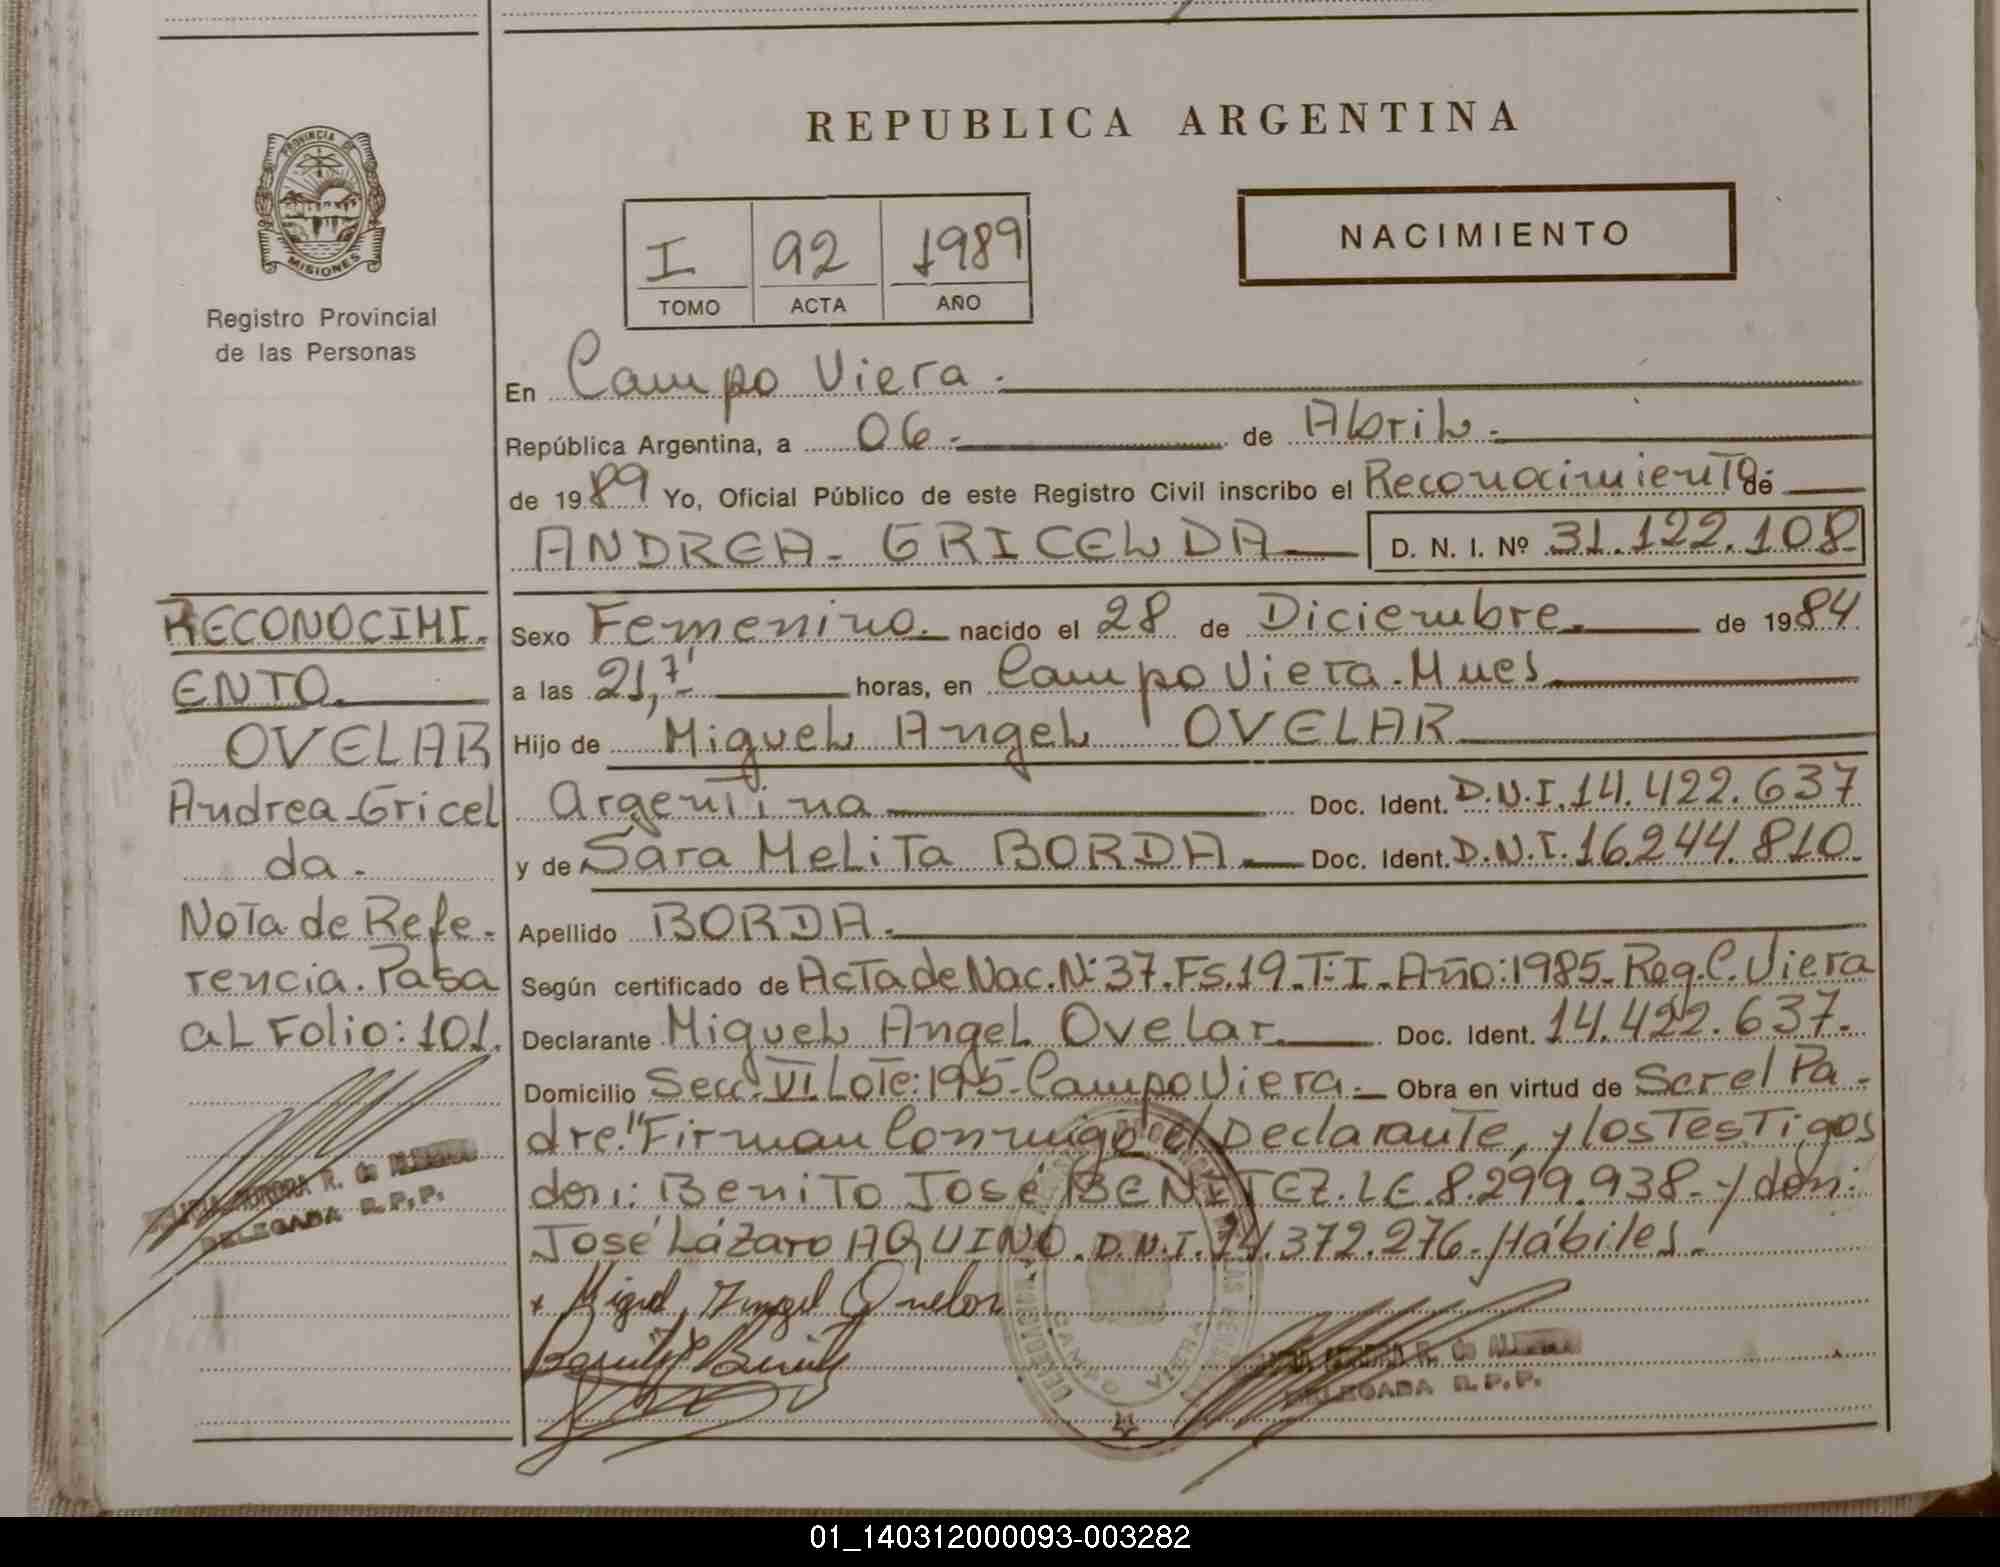 REPUBLICA ARGENTINA
PROVINCIA DE
MISIONES
Registro Provincial
de las Personas
I 92 1989
TOMO ACTA AÑO
NACIMIENTO
En Campo Viera.
República Argentina, a 06.- de Abril.-
de 1989 Yo, Oficial Público de este Registro Civil inscribo el Reconocimiento.- de
ANDREA-GRICELDA D. N. I. Nº 31.122.108
Sexo Femenino. nacido el 28 de Diciembre. de 1984
a las 21, horas, en Campo Viera.Mnes
Hijo de Miguel Angel OVELAR
Argentina Doc. Ident. D.N.I.14.422.637
y de Sara Melita BORDA Doc. Ident. D.N.I.16.244.810.
Apellido BORDA.
Según certificado de Acta de Nac.Nº37.Fs.19.T:I.Año:1985.Reg.C.Viera
Declarante Miguel Angel Ovelar Doc. Ident. 14.422.637.
Domicilio Secc.VI Lote:195-Campo Viera.- Obra en virtud de Ser el Pa-
dre."Firman Conmigo el Declarante, y los Testigos
don: Benito José BENITEZ.LE.8.299.938.-y don:
José Lázaro AQUINO.D.N.I.14.372.276.Hábiles.-
Miguel Angel Ovelar
DELEGADA R.P.P.
CAMPO VIERA
RECONOCIMI.
ENTO.
OVELAR
Andrea-Gricel
da.-
Nota de Refe-
rencia.Pasa
al Folio:101.
R. de
DELEGADA R.P.P.
01_140312000093-003282